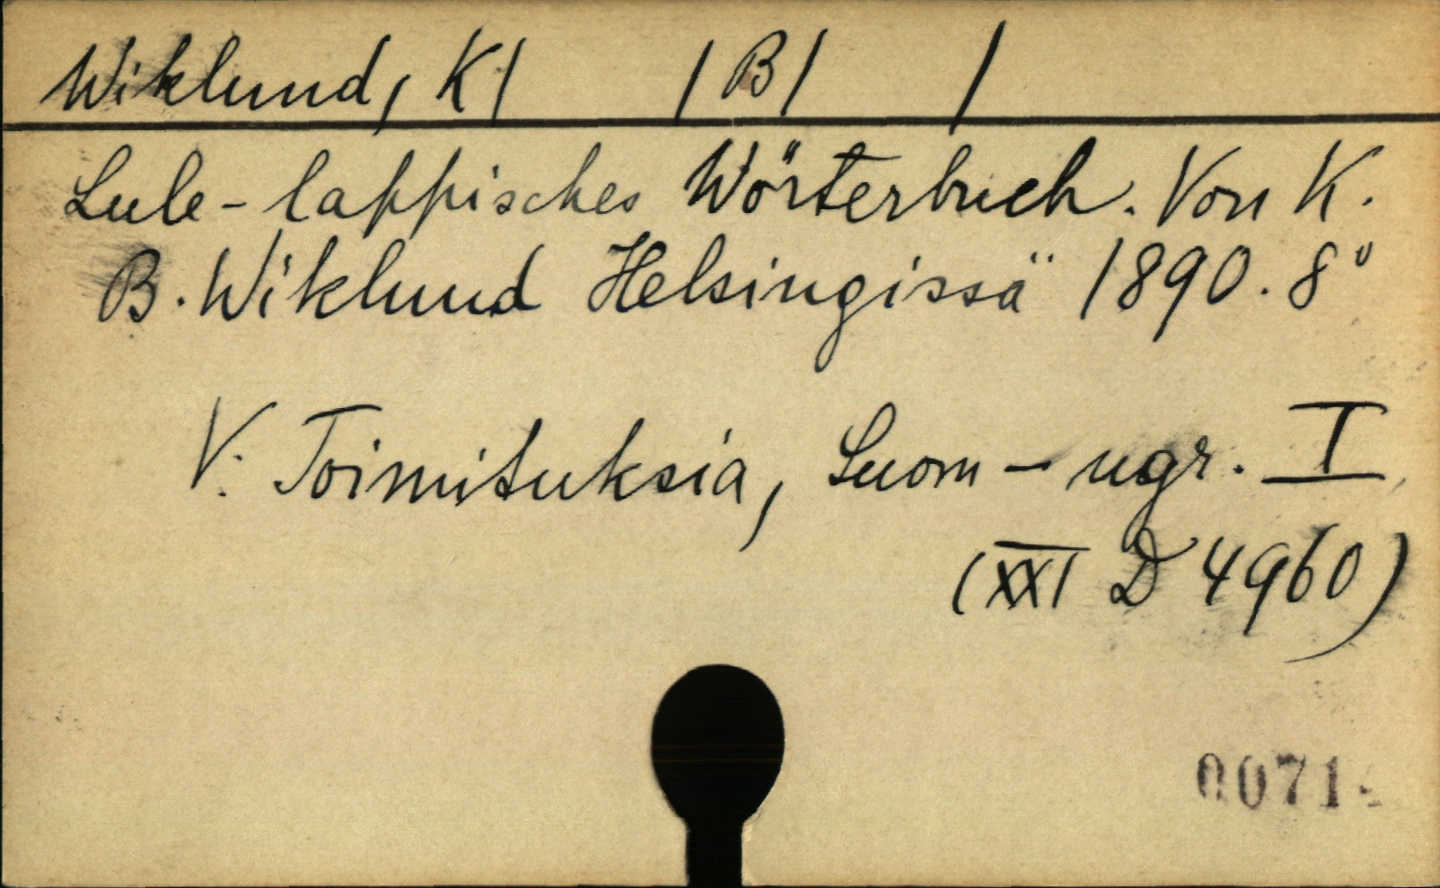 Wiklund, K/ /B/ /
Lule-lappisches Wörterbuch. Von K.
B. Wiklund Helsingissä 1890. 8°
V. Toimituksia, Suom-ugr. I
(XXI D 4960)
0071